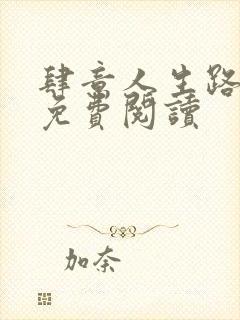 肆意人生路
免費閱讀
加奈